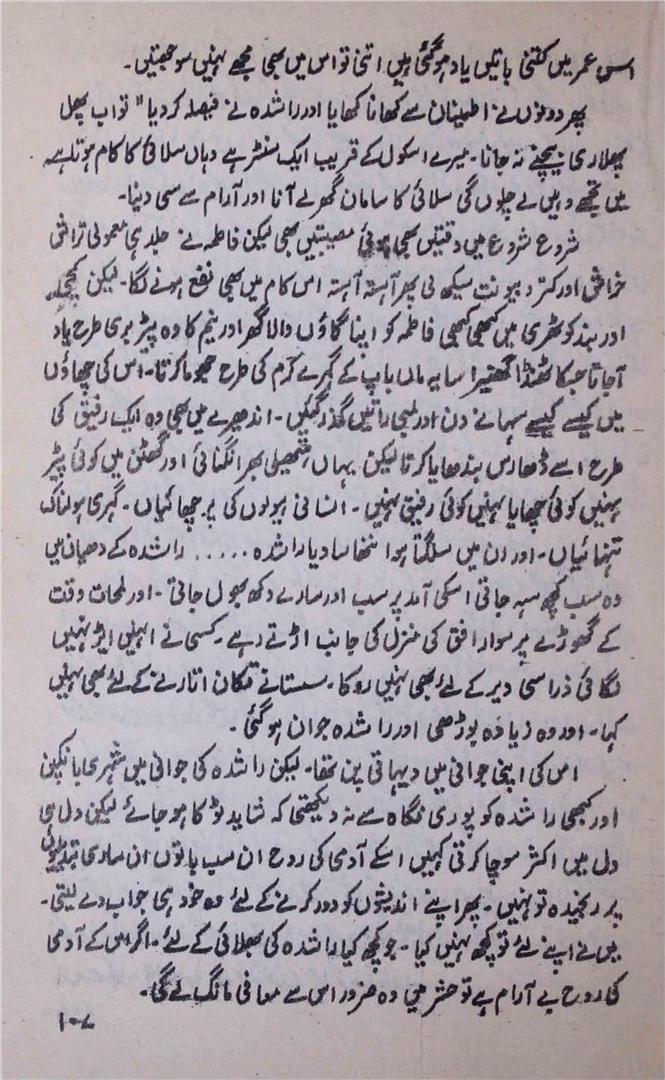 اس عمر میں کتنی باتیں یاد ہو گئی ہیں اتنی تو اس میں بھی مجھے نہیں سوجھتیں۔
پھر دونوں نے اطمینان سے کھانا کھایا اور راشدہ نے فیصلہ کر دیا " تو اب پھل
پھلاری بیچنے نہ جانا۔ میرے اسکول کے قریب ایک سنٹر ہے وہاں سلائی کا کام ہوتا ہے
میں تجھے وہیں لے چلوں گی سلائی کا سامان گھر لے آنا اور آرام سے سی دینا۔
شروع شروع میں دقتیں بھی ہوئی مصیبتیں بھی لیکن فاطمہ نے جلد ہی معمولی تراش
خراش اور کتر و بیونت سیکھ لی پھر آہستہ آہستہ اس کام میں بھی نفع ہونے لگا۔ لیکن
اور بند کوٹھری میں کبھی کبھی فاطمہ کو اپنا گاؤں والا گھر اور نیم کا وہ پیڑ بری طرح یاد
آجاتا جسکا ٹھنڈا گھنیرا سایہ ماں باپ کے گہرے کرم کی طرح جھوما کرتا۔ اس کی چھاؤں
میں کیسے کیسے سہانے دن اور لمبی راتیں گذر گئیں۔ اندھیرے میں بھی وہ ایک رفیق کی
طرح اسے ڈھارس بندھایا کرتا لیکن یہاں، ہتھیلی بھر انگنائی اور گھٹن میں کوئی پیڑ
نہیں کوئی چھایا نہیں کوئی رفیق نہیں۔ انسانی ہیولوں کی پرچھائیاں۔ گہری ہولناک
تنہائیاں۔ اور ان میں سلگتا ہوا ننھا سا دیا راشدہ ..... راشدہ کے دھیان میں
وہ سب کچھ سہہ جاتی اسکی آمد پر سب اور سارے دکھ بھول جاتی۔ اور لمحات وقت
کے گھوڑے پر سوار افق کی منزل کی جانب اڑتے رہے۔ کسی نے انہیں ایڑ نہیں
لگائی ذرا سی دیر کے لئے بھی نہیں روکا۔ سستانے تکان اتارنے کے لئے بھی نہیں
کہا۔ اور وہ زیادہ بوڑھی اور راشدہ جوان ہو گئی۔
اس کی اپنی جوانی میں دیہاتی پن تھا۔ لیکن راشدہ کی جوانی میں شہری بانکپن
اور کبھی راشدہ کو پوری نگاہ سے نہ دیکھتی کہ شاید ٹوکا ہو جائے لیکن دل ہی
دل میں اکثر سوچا کرتی کہیں اسکے آدمی کی روح ان سب باتوں ان ساری تبدیلیوں
پر رنجیدہ تو نہیں۔ پھر اپنے اندیشوں کو دور کرنے کے لئے وہ خود ہی جواب دے لیتی۔
میں نے اپنے لئے تو کچھ نہیں کیا۔ جو کچھ کیا راشدہ کی بھلائی کے لئے۔ اگر اس کے آدمی
کی روح بے آرام ہے تو حشر میں وہ ضرور اس سے معافی مانگ لے گی۔
۱۰۷